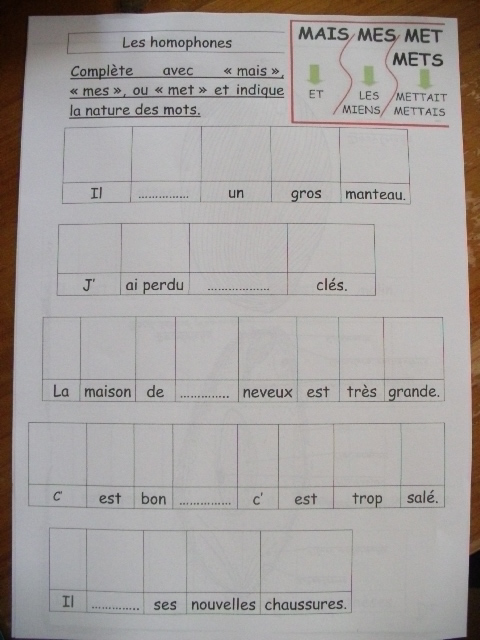 Les homophones
Complète avec « mais »,
« mes », ou « met » et indique
la nature des mots.
MAIS MES MET
METS
ET LES METTAIT
MIENS METTAIS
Il ............... un gros manteau.
J' ai perdu .................... clés.
La maison de .............. neveux est très grande.
C' est bon ............... c' est trop salé.
Il .............. ses nouvelles chaussures.